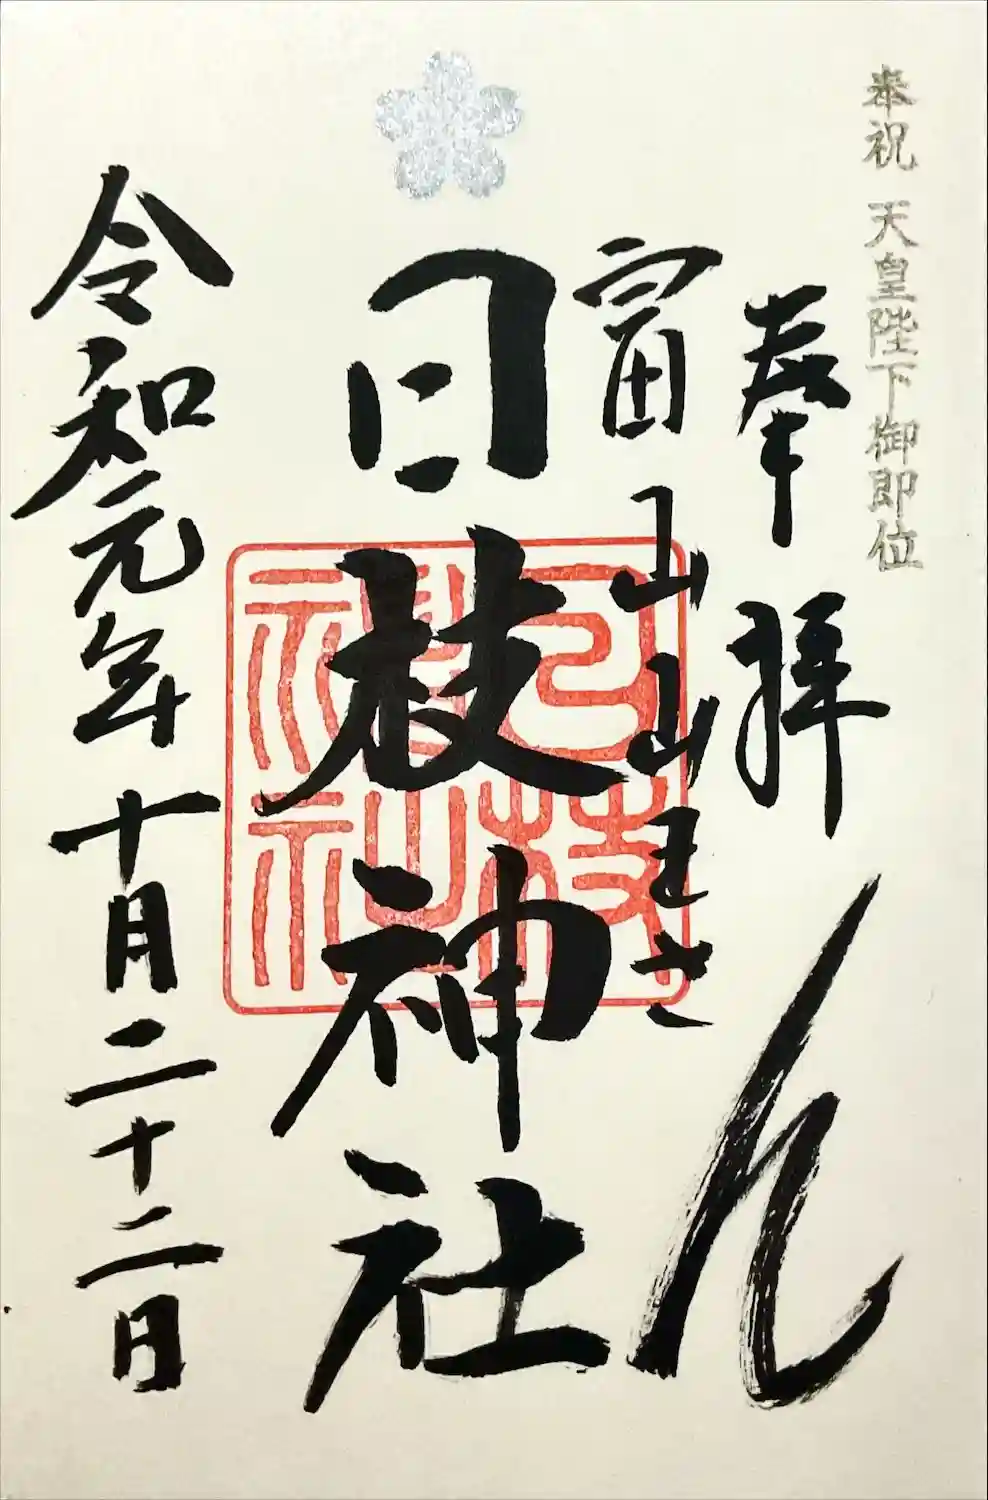 奉祝 天皇陛下御即位
奉拝
富山山王さん
日枝神社
日枝
神社
令和元年十月二十二日